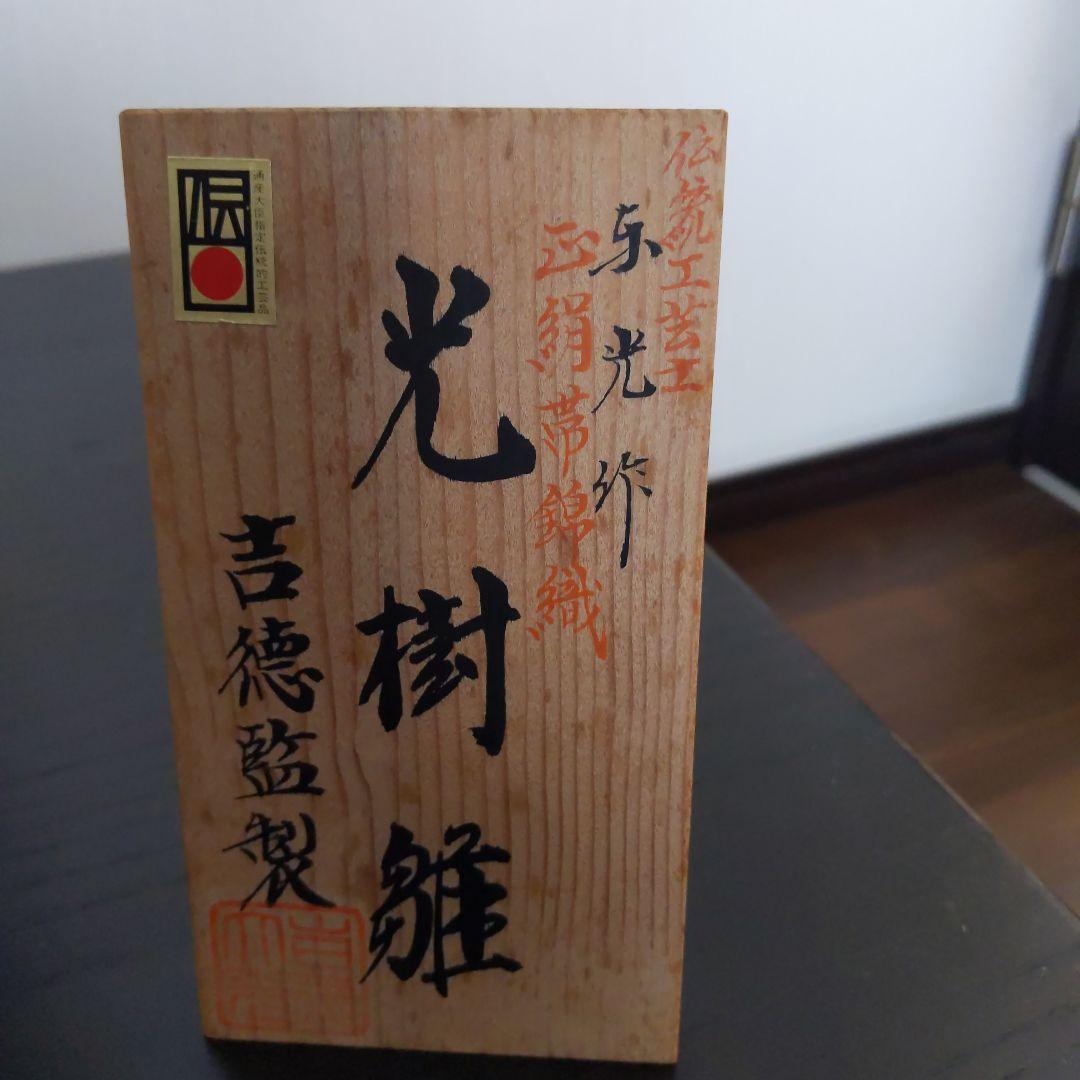 伝統工芸士
东光作
正絹帯錦織
光樹雛
吉德監製
通産大臣指定伝統的工芸品